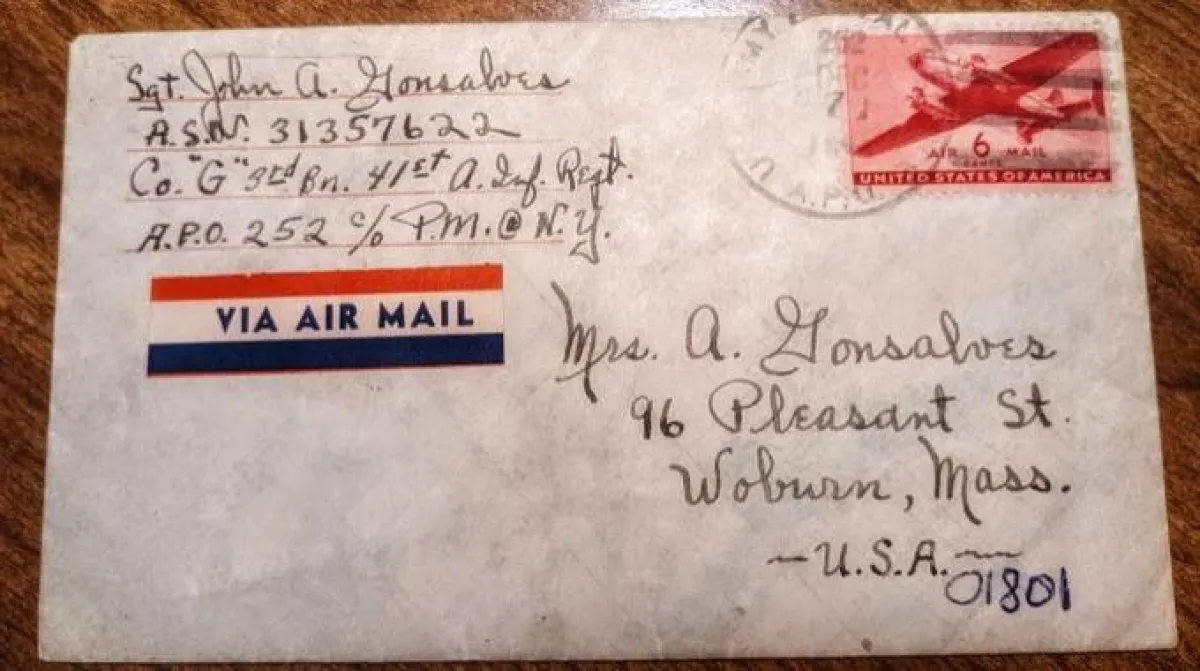 Sgt. John A. Gonsalves
A.S.N. 31357622
Co. "G" 3rd Bn. 41st A. Inf. Regt.
A.P.O. 252 c/o P.M. @ N.Y.
VIA AIR MAIL
252
7
A.P.O.
AIR 6 MAIL
CENTS
UNITED STATES OF AMERICA
Mrs. A. Gonsalves
96 Pleasant St.
Woburn, Mass.
~U.S.A.~
01801